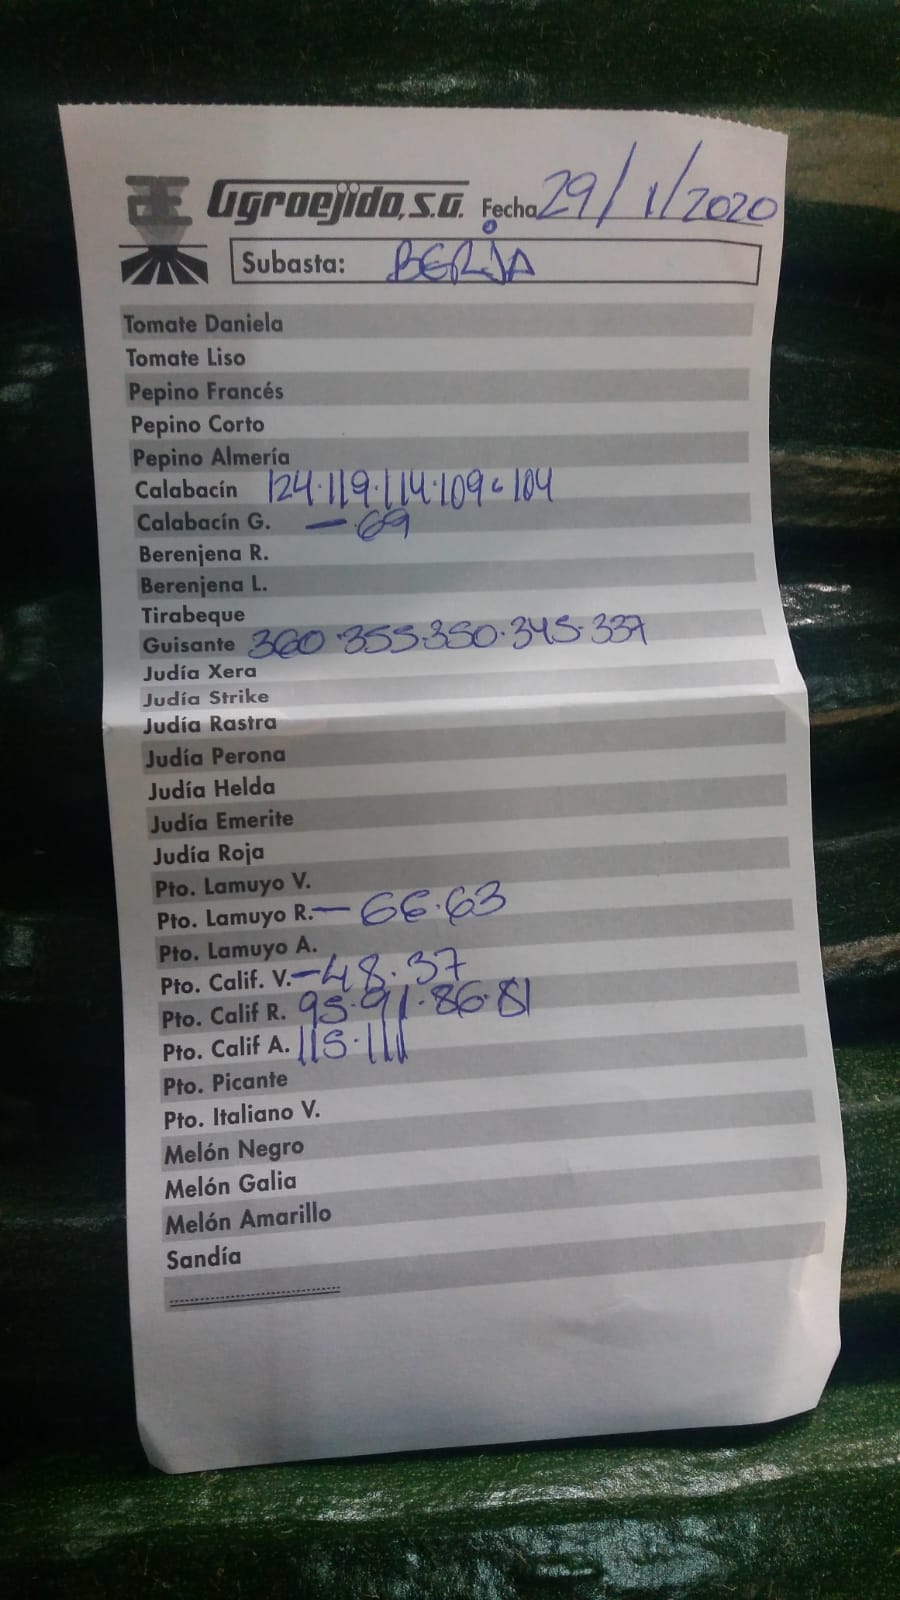 Agroejido, S.A. Fecha 29/1/2020
Subasta: BERJA
Tomate Daniela
Tomate Liso
Pepino Francés
Pepino Corto
Pepino Almería
Calabacín 124·119·114·109·104
Calabacín G. — 69
Berenjena R.
Berenjena L.
Tirabeque
Guisante 360·355·350·345·337
Judía Xera
Judía Strike
Judía Rastra
Judía Perona
Judía Helda
Judía Emerite
Judía Roja
Pto. Lamuyo V.
Pto. Lamuyo R. — 66·63
Pto. Lamuyo A.
Pto. Calif. V. — 48·37
Pto. Calif R. 95·91·86·81
Pto. Calif A. 115·111
Pto. Picante
Pto. Italiano V.
Melón Negro
Melón Galia
Melón Amarillo
Sandía